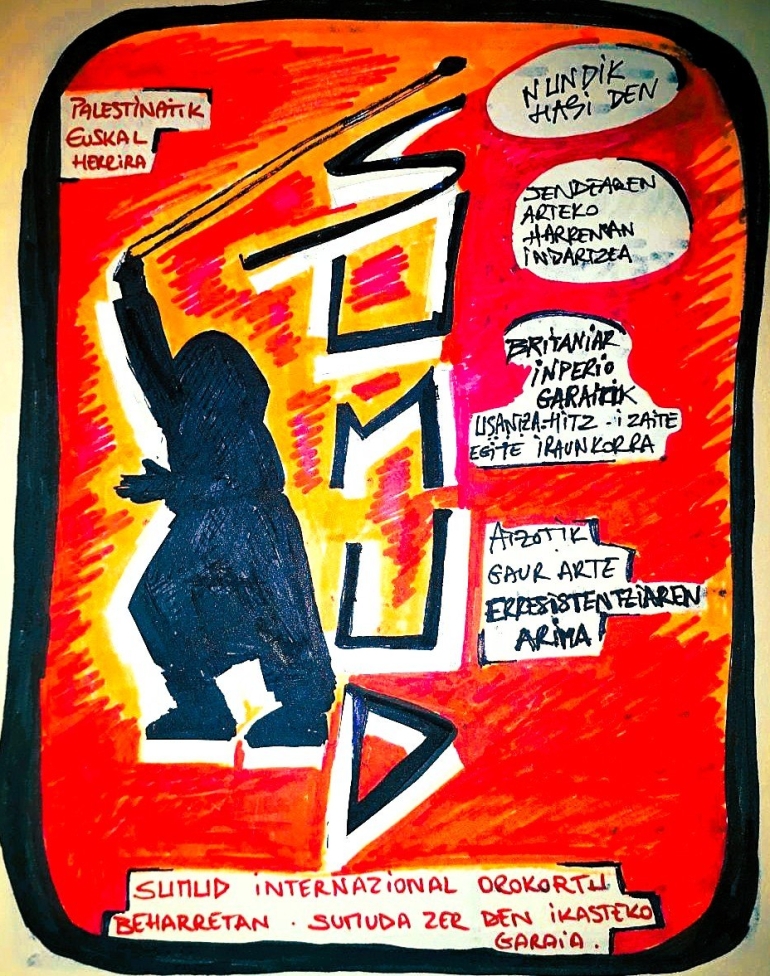 PALESTINATIK
EUSKAL
HERRIRA
SUMUD
NUNDIK
HASI DEN
JENDEAREN
ARTEKO
HARREMAN
INDARTZEA
BRITANIAR
INPERIO
GARAITIK
USANTZA-HITZ-IZAITE
EGITE IRAUNKORRA
AIZOTIK
GAUR ARTE
ERRESISTENTZIAREN
ARIMA
SUMUD INTERNAZIONAL OROKORTU
BEHARRETAN . SUMUDA ZER DEN IKASTEKO
GARAIA .